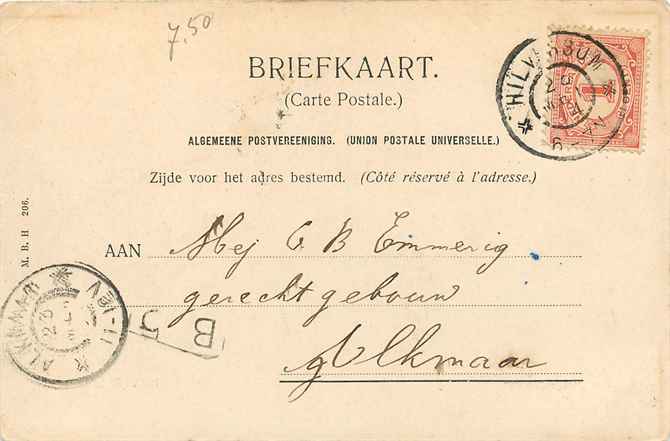 7.50
BRIEFKAART.
(Carte Postale.)
ALGEMEENE POSTVEREENIGING. (UNION POSTALE UNIVERSELLE.)
Zijde voor het adres bestemd. (Côté réservé à l'adresse.)
AAN Mej C. B Emmerig
gerechtgebouw
Alkmaar
M. B. H 206.
HILVERSUM
23
1
ALKMAAR
23
B 5